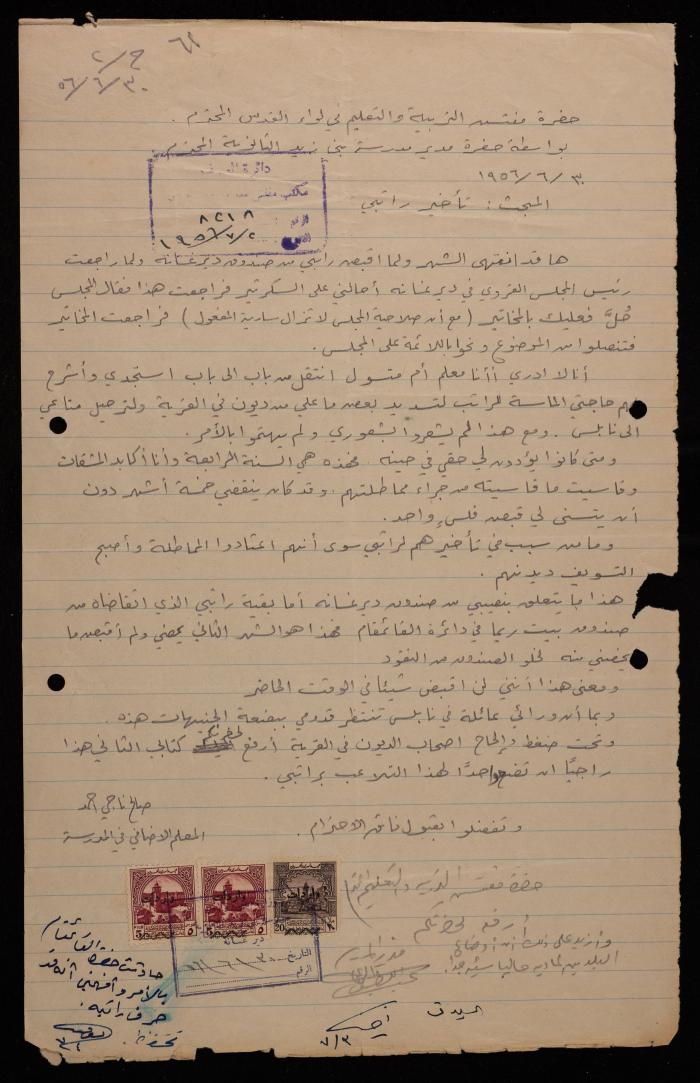 ٦٩
ج/٢
٥٦/٦/٣٠
حضرة مفتش التربية والتعليم في لواء القدس المحترم .
بواسطة حضرة مدير مدرسة بني زيد الثانوية المحترم
١٩٥٦/٦/٣٠
المبحث : تأخير راتبي
دائرة
مكتب
الرقم ٨٢١٨
١٩٥٦/٧/٢
ها قد انقضى الشهر ولما اقبض راتبي من صندوق ديرغسانه ولما راجعت
رئيس المجلس القروي في ديرغسانه أحالني على السكرتير فراجعت هذا فقال المجلس
حُلَّ فعليك بالمخاتير ( مع أن صلاحية المجلس لا تزال سارية المفعول ) فراجعت المخاتير
فتنصلوا من الموضوع ونحوا باللائمة على المجلس .
أنا لا ادري أأنا معلم أم متسول انتقل من باب الى باب استجدي وأشرح
لهم حاجتي الماسة للراتب لتسديد بعض ما علي من ديون في القرية ولترحيل متاعي
الى نابلس . ومع هذا لم يشعروا بشعوري ولم يهتموا بالأمر .
ومتى كانوا يؤدون لي حقي في حينه . فهذه هي السنة الرابعة وأنا أكابد المشقات
وقاسيت ما قاسيته من جراء مماطلتهم . وقد كان ينقضي خمسة أشهر دون
أن يتسنى لي قبض فلسٍ واحد .
وما من سبب في تأخيرهم لراتبي سوى أنهم اعتادوا المماطلة وأصبح
التسويف ديدنهم .
هذا ما يتعلق بنصيبي من صندوق ديرغسانه أما بقية راتبي الذي اتقاضاه من
صندوق بيت ريما في دائرة القائمقام فهذا هو الشهر الثاني يمضي ولم أقبض ما
يخصني منه لخلو الصندوق من النقود
ومعنى هذا أنني لن اقبض شيئا في الوقت الحاضر
وبما أن ورائي عائلة في نابلس تنتظر قدومي ببضعة الجنيهات هذه .
وتحت ضغط وإلحاح اصحاب الديون في القرية أرفع لحضرتكم كتابي الثاني هذا
راجيًا ان تضعوا حدًا لهذا التلاعب براتبي .
وتفضلوا بقبول فائق الاحترام .
صالح ناجي احمد
المعلم الاضافي في المدرسة
حضرة مفتش التربية والتعليم
أرفع لحضرتكم
وأزيد على ذلك أن أوضاع
البلدين المادية حاليا سيئة جدا .
مدير المدرسة
واردات
واردات
واردات
٥
٥
20
دير غسانه
التاريخ ٥٦/٦/٣٠
الرقم
حادثت حضرة القائمقام
بالأمر وأفهمني أنه قد
صرف راتبه .
تحفظ .
٧/٣